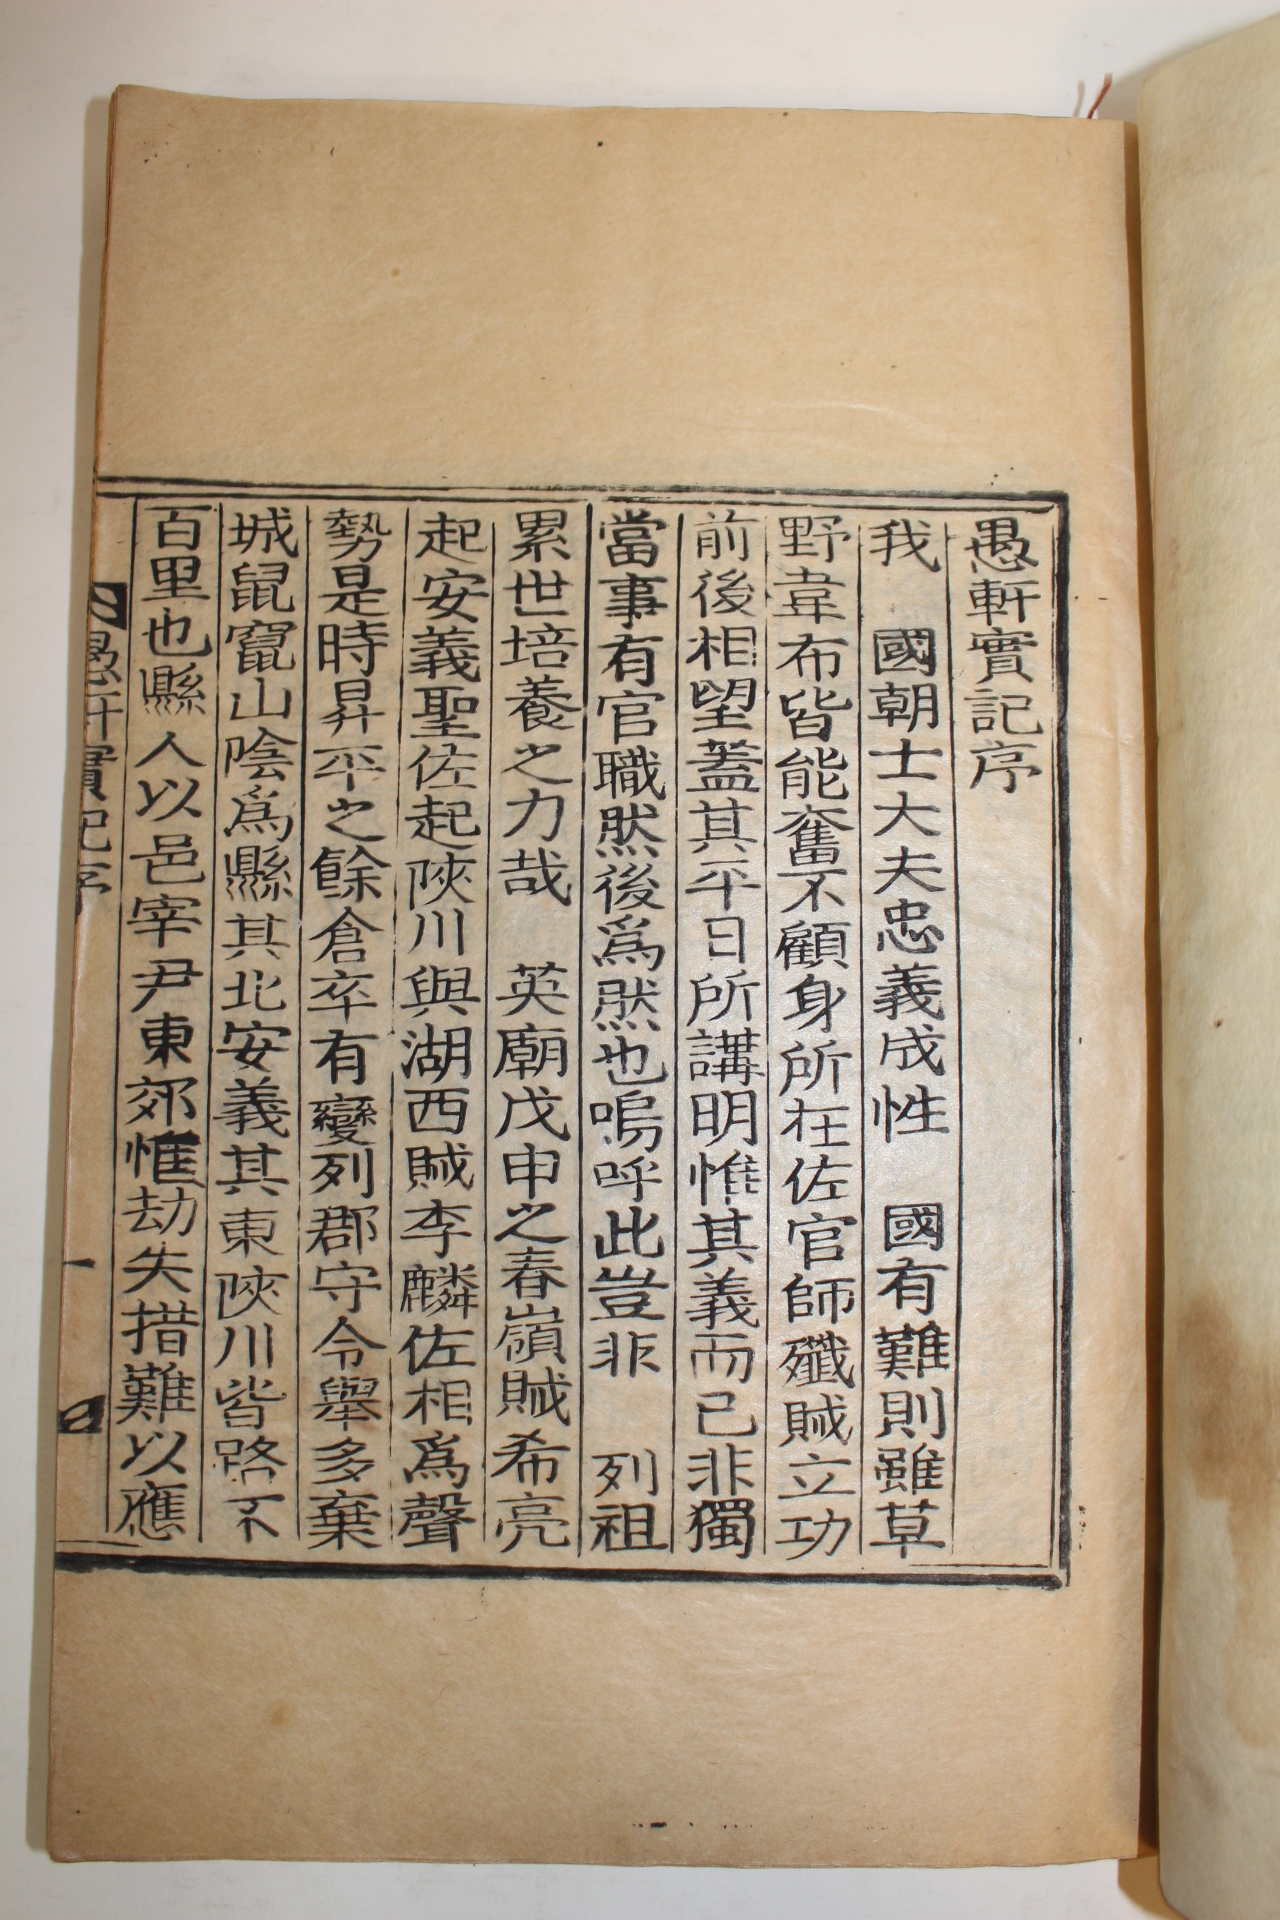 愚軒實記序
我 國朝士大夫忠義成性 國有難則雖草
野韋布皆能奮不顧身所在佐官師殲賊立功
前後相望蓋其平日所講明惟其義而已非獨
當事有官職然後爲然也嗚呼此豈非 列祖
累世培養之力哉 英廟戊申之春嶺賊希亮
起安義聖佐起陜川與湖西賊李麟佐相爲聲
勢是時昇平之餘倉卒有變列郡守令舉多棄
城鼠竄山陰爲縣其北安義其東陜川皆路不
百里也縣人以邑宰尹東郊惟劫失措難以應
愚軒實記序 一